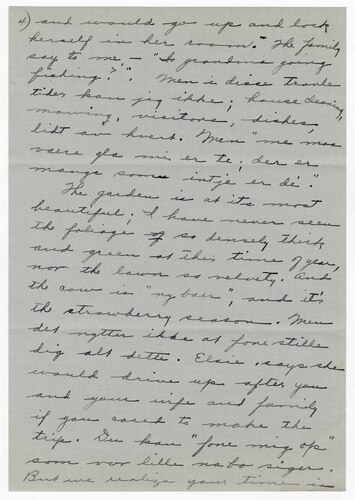 4) and would go up and lock
herself in her room." The family
say to me, - "Is grandma going
fishing?". Men i disse travle
tider kan jeg ikke; house cleaning,
mowing, visitors, dishes,
lidt av hvert. Men "me maa
vaere gla mis er te, der er
mange som intje er dé".
The garden is at its most
beautiful; I have never seen
the foliage of so densely thick
and green at this time of year,
nor the lawn so velvety. And
the cow is "ny baer", and it's
the strawberry season. Men
det nytter ikke at fore stille
dig alt dette. Elsie says she
would drive up after you
and your wife and family
if you cared to make the
trip. Du kan "fone mig op"
som vor lille nabo siger.
But we realize your time is